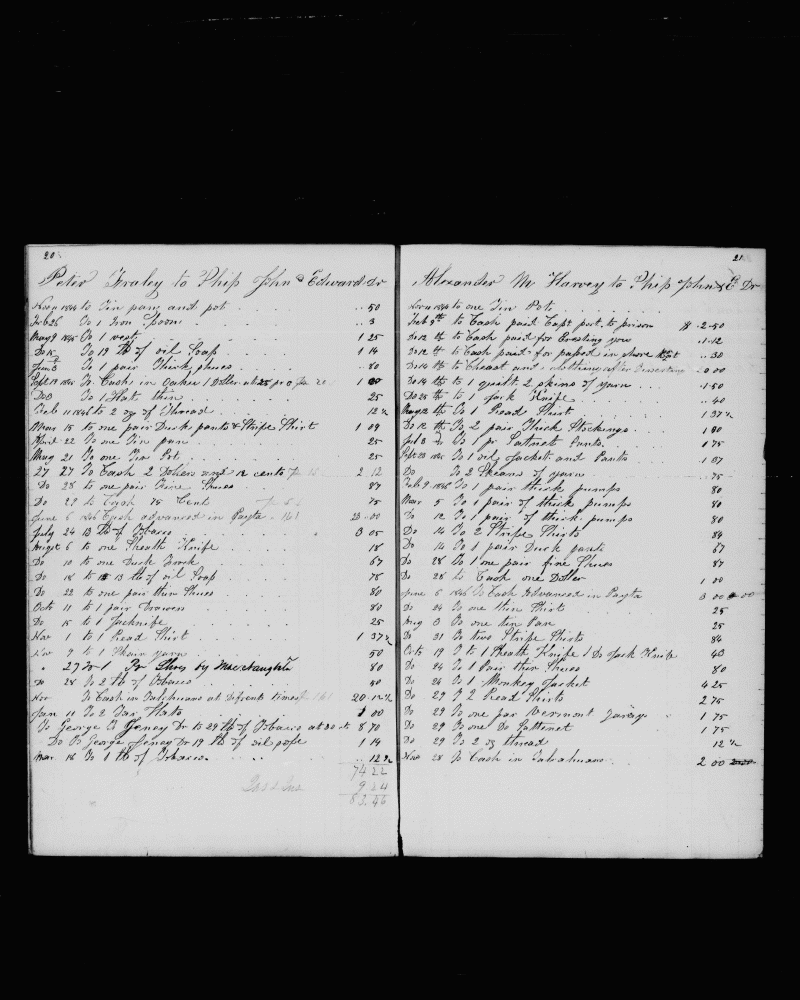 20
Peter Fraley to Ship John & Edward Dr
Nov 11 1844 to Tin pan and pot .. 50
Feb 26 To 1 Iron Spoon .. 3
May 9 1845 To 1 vest 1 25
Do 15 To 19 lb of oil Soap 1 14
June 3 To 1 pair Thick shues .. 80
Sept 19 1845 To Cash in Oahue 1 Doller at
Do 3 To 1 Hat thin 25
Feb 11 1846 to 2 oz of Thread 12 ½
Mar 15 to one pair Duck pants & Stripe Shirt 1 09
April 22 To one Tin pan 25
May 21 To one Tin Pot 25
27 27 To Cash 2 Dolers and 12 cents 2 12
Do 28 to one pair Fine Shues 87
Do 29 to Cash 75 Cent 75
June 6 1846 Cash advanced in Payta 23 .. 00
July 24 13 lb of Tobacco 3 05
Augt 6 to one Sheath Knife 18
Do 10 to one Duck Frock 67
Do 18 to 13 lb of oil Soap 78
Do 22 to one pair thin Shues 80
Octo 11 to 1 pair Drawers 80
Do 15 to 1 Jacknife 25
Nov 1 to 1 Read Shirt 1 37 ½
Nov 9 to 1 Skain yarn 50
" 27 To 1 Pr Shoes by MacNaughton 80
Do 28 To 2 lb of Tobacco 50
Nov To Cash in Talchuano at Difrents times 20 .. 12 ½
Jan 11 To 2 Tar Hats 1 00
To George A Jeney Dr to 29 lb of Tobacco at 30 ct 8 70
Do To George Jeney Dr 19 lb of oil sope 1 14
Mar 16 To 1 lb of Tobacco .. 12 ½
74 22
9 24
83.46
21
Alexander M Harvey to Ship John & E Dr
Nov 11 1844 to one Tin Pot
Feb 9th to Cash paid Capt port to prison $ 2 50
Do 12 th to Cash paid for Aresting you 1 12
Do 12 th to Cash paid for passed in shore .. 30
Do 14 th to Cheast and clothing after Deserting 0 00
Do 14 th to 1 quilt 2 skins of yarn 1 50
Do 25 th to 1 jack Knife .. 40
May 12 th To 1 Read Shirt 1 37 ½
Do 12 th To 2 pair Thick Stockings 1 80
July 3 To 1 pr Satnet Pants 1 75
Sept 23 1845 To 1 oil Jacket and Pants 1 87
Do To 2 Skeans of yarn .. 75
Feb 9 1846 To 1 pair thick pumps 80
Mar 5 To 1 pair of thick pumps 80
Do 12 To 1 pair of thick pumps 80
Do 14 To 2 Stripe Shirts 84
Do 14 To 1 pair Duck pants 67
Do 28 To 1 one pair fine Shues 87
Do 28 to Cash one Doller 1 00
June 6 1846 To Cash Advanced in Payta 3 00
Do 24 To one thin Shirt 25
Aug 3 To one tin Pan 25
Do 31 To two Stripe Shirts 84
Octo 19 To 1 Sheath Knife 1 Do Jack Knife 43
Do 24 To 1 Pair thin Shues 80
Do 24 To 1 Monkey Jacket 4 25
Do 29 To 2 Read Shirts 2 75
Do 29 To one par Vermont 1 75
Do 29 To one Do Sattenet 1 75
Do 29 To 2 oz thread 12 ½
Nov 28 To Cash in Talcahuano 2 00